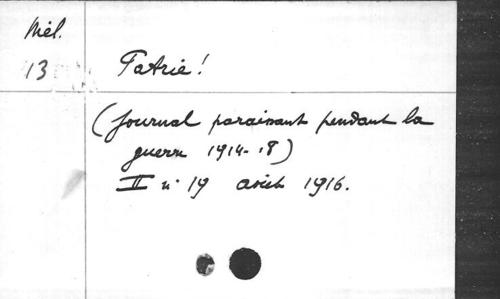 Mél.
13 Patrie !
(Journal paraissant pendant la
guerre 1914-18)
II n° 19 août 1916.